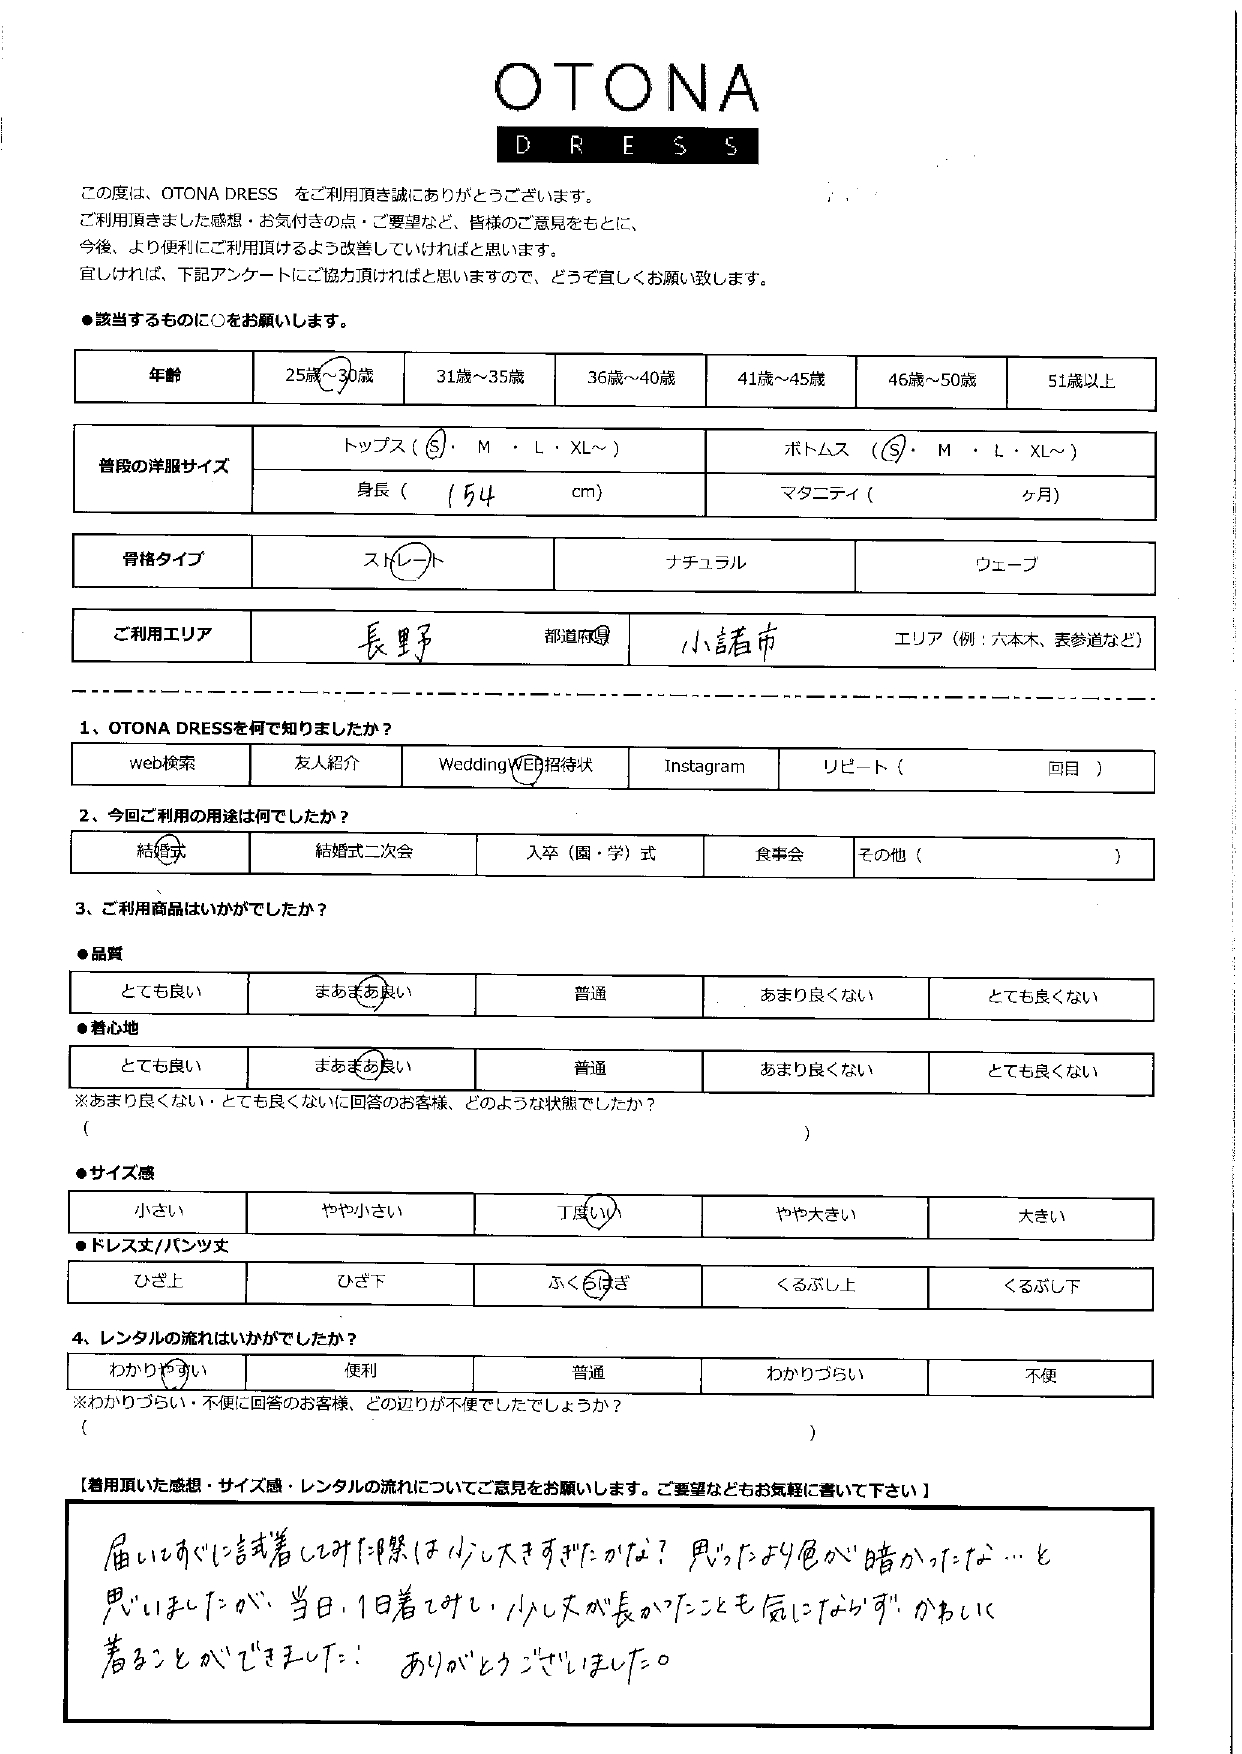 OTONA
DRESS
この度は、OTONA DRESS　をご利用頂き誠にありがとうございます。
ご利用頂きました感想・お気付きの点・ご要望など、皆様のご意見をもとに、
今後、より便利にご利用頂けるよう改善していければと思います。
宜しければ、下記アンケートにご協力頂ければと思いますので、どうぞ宜しくお願い致します。
●該当するものに○をお願いします。
年齢 25歳～30歳 31歳～35歳 36歳～40歳 41歳～45歳 46歳～50歳 51歳以上
普段の洋服サイズ トップス ( S ・ M ・ L ・ XL～ ) ボトムス ( S ・ M ・ L ・ XL～ )
身長 ( 154 cm) マタニティ ( ヶ月)
骨格タイプ ストレート ナチュラル ウェーブ
ご利用エリア 長野 都道府県 小諸市 エリア（例：六本木、表参道など）
1、OTONA DRESSを何で知りましたか？
web検索 友人紹介 WeddingWEB招待状 Instagram リピート ( 回目 )
2、今回ご利用の用途は何でしたか？
結婚式 結婚式二次会 入卒（園・学）式 食事会 その他 ( )
3、ご利用商品はいかがでしたか？
●品質
とても良い まあまあ良い 普通 あまり良くない とても良くない
●着心地
とても良い まあまあ良い 普通 あまり良くない とても良くない
※あまり良くない・とても良くないに回答のお客様、どのような状態でしたか？
( )
●サイズ感
小さい やや小さい 丁度いい やや大きい 大きい
●ドレス丈/パンツ丈
ひざ上 ひざ下 ふくらはぎ くるぶし上 くるぶし下
4、レンタルの流れはいかがでしたか？
わかりやすい 便利 普通 わかりづらい 不便
※わかりづらい・不便に回答のお客様、どの辺りが不便でしたでしょうか？
( )
【着用頂いた感想・サイズ感・レンタルの流れについてご意見をお願いします。ご要望などもお気軽に書いて下さい】
届いてすぐに試着してみた際は少し大きすぎたかな？ 思ったより色が暗かったな…と
思いましたが、当日、1日着てみて、少し丈が長かったことも気にならず、かわいく
着ることができました！ ありがとうございました。